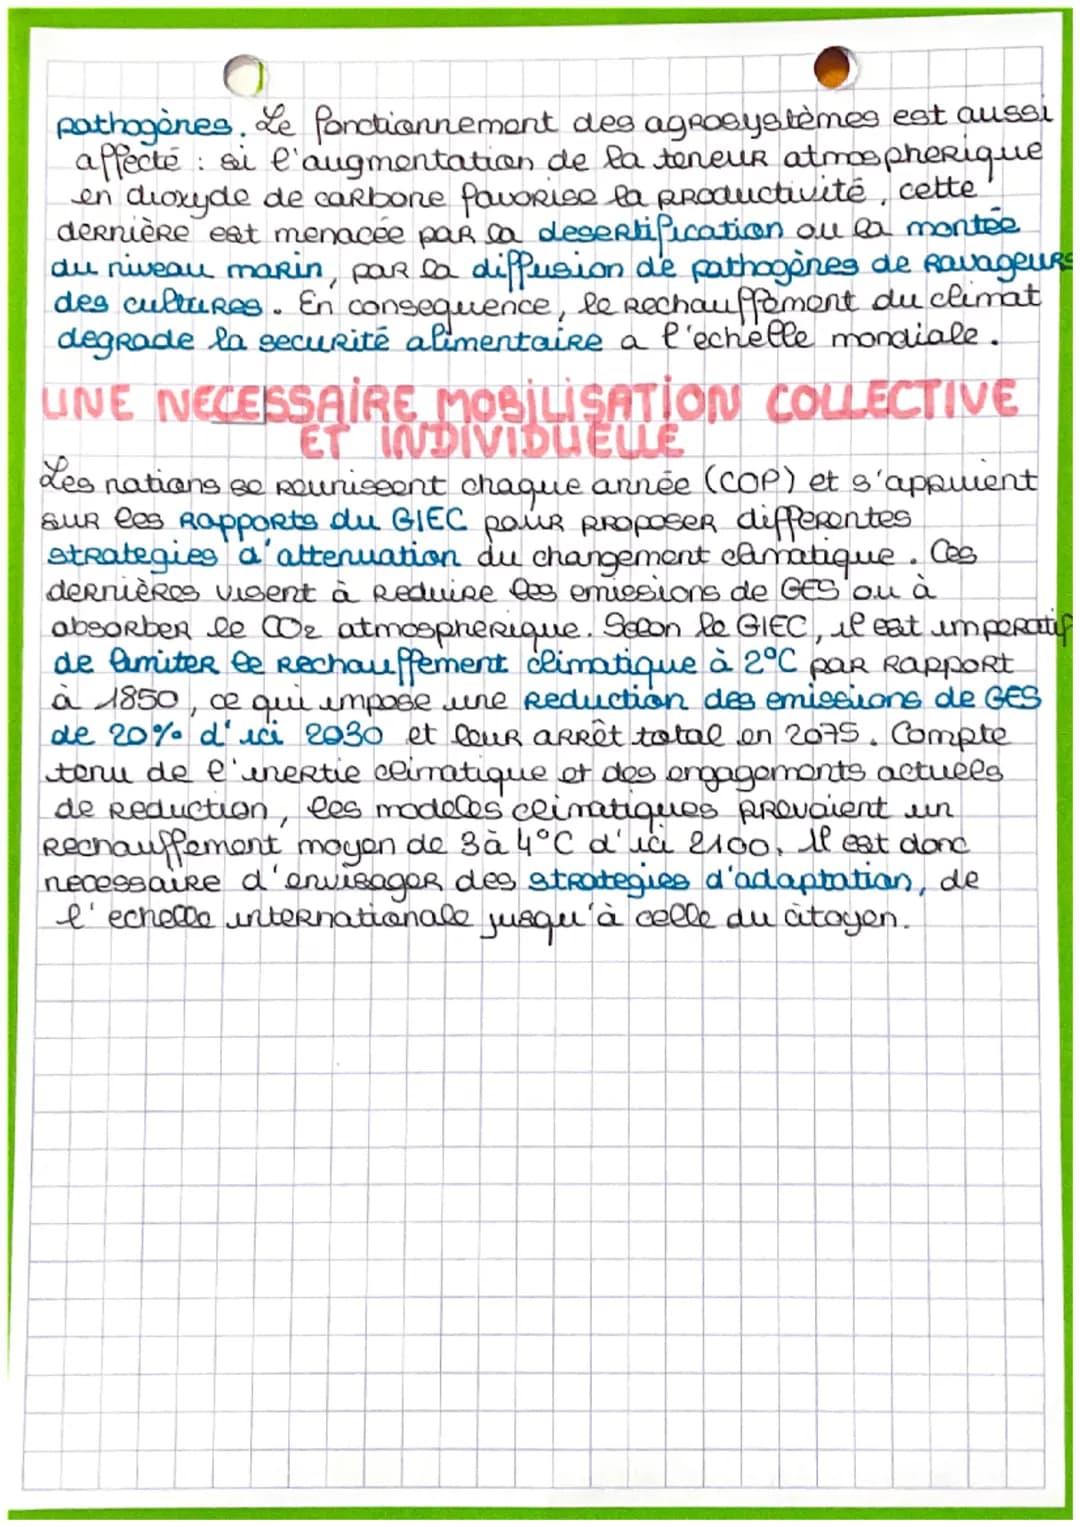 pathogènes. Le fonctionnement des agrosystèmes est aussi
affecté : si l'augmentation de la teneur atmospherique
en dioxyde de carbone favorise la productivité, cette
dernière est menacée par la desertification ou la montée
du niveau marin, par la diffusion de pathogènes de ravageurs
des cultures. En consequence, le rechauffement du climat
degrade la securité alimentaire a l'echelle mondiale.
UNE NECESSAIRE MOBILISATION COLLECTIVE
ET INDIVIDUELLE
Les nations se reunissent chaque année (COP) et s'appuient
sur les rapports du GIEC pour proposer differentes
strategies d'attenuation du changement climatique. Ces
dernières visent à reduire les emissions de GES ou à
absorber le CO2 atmospherique. Selon le GIEC, il est imperatif
de limiter le rechauffement climatique à 2°C par rapport
à 1850, ce qui impose une reduction des emissions de GES
de 20% d'ici 2030 et leur arrêt total en 2075. Compte
tenu de l'inertie climatique et des engagements actuels
de reduction, les modeles climatiques prevoient un
rechauffement moyen de 3 à 4°C d'ici 2100. Il est donc
necessaire d'envisager des strategies d'adaptation, de
l'echelle internationale jusqu'à celle du citoyen.